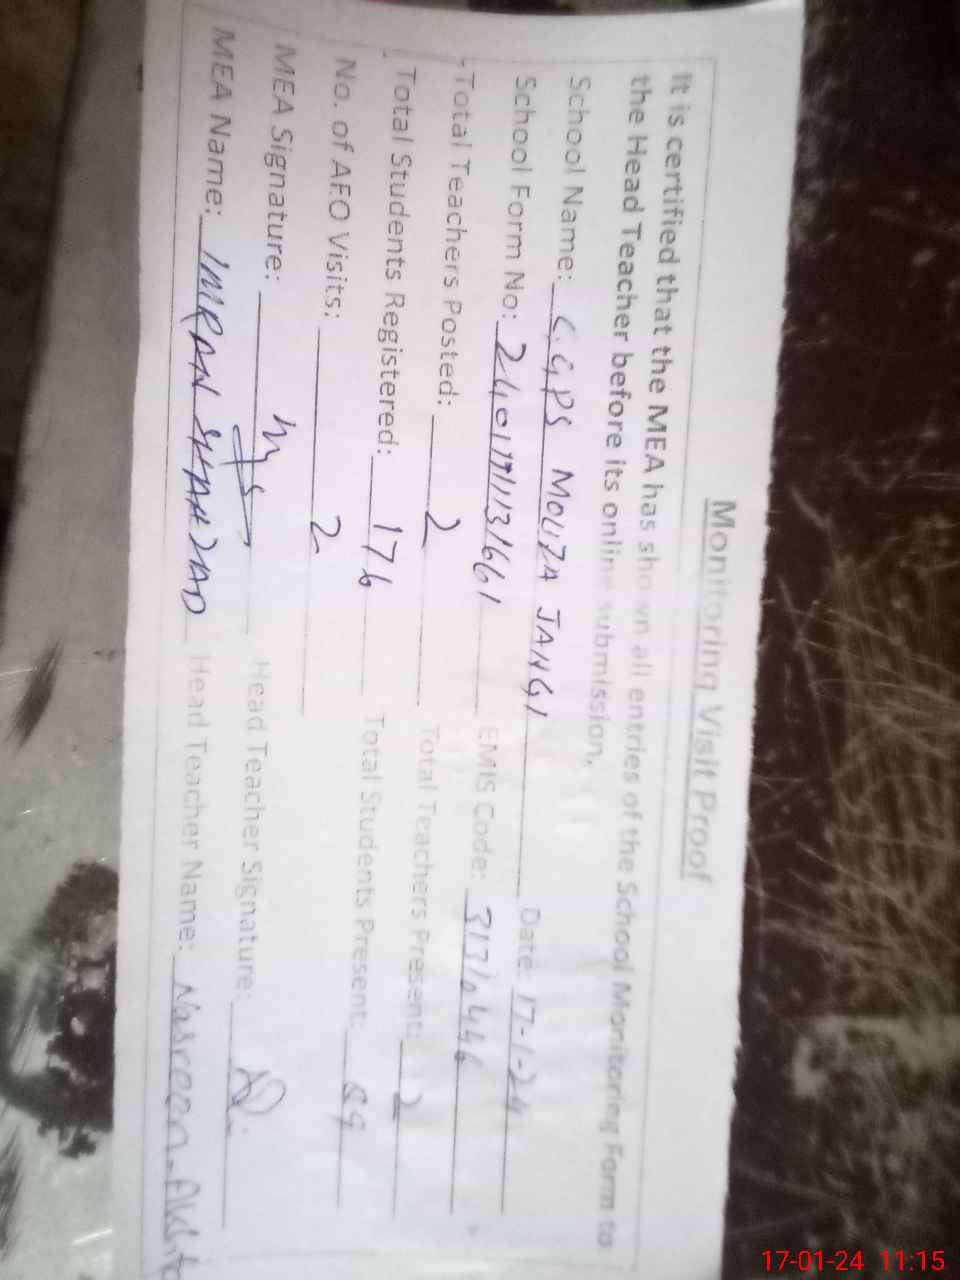 Monitoring Visit Proof
It is certified that the MEA has shown all entries of the School Monitoring Form to
the Head Teacher before its online submission.
School Name: G.GPS MOUZA JANGI Date: 17-1-24
School Form No: EMIS Code:
Total Teachers Posted: 2 Total Teachers Present: 2
Total Students Registered: 176 Total Students Present: 89
No. of AEO Visits: 2
MEA Signature: Head Teacher Signature:
MEA Name: IMRAN SHAHZAD Head Teacher Name: Nasreen Akht
17-01-24 11:15